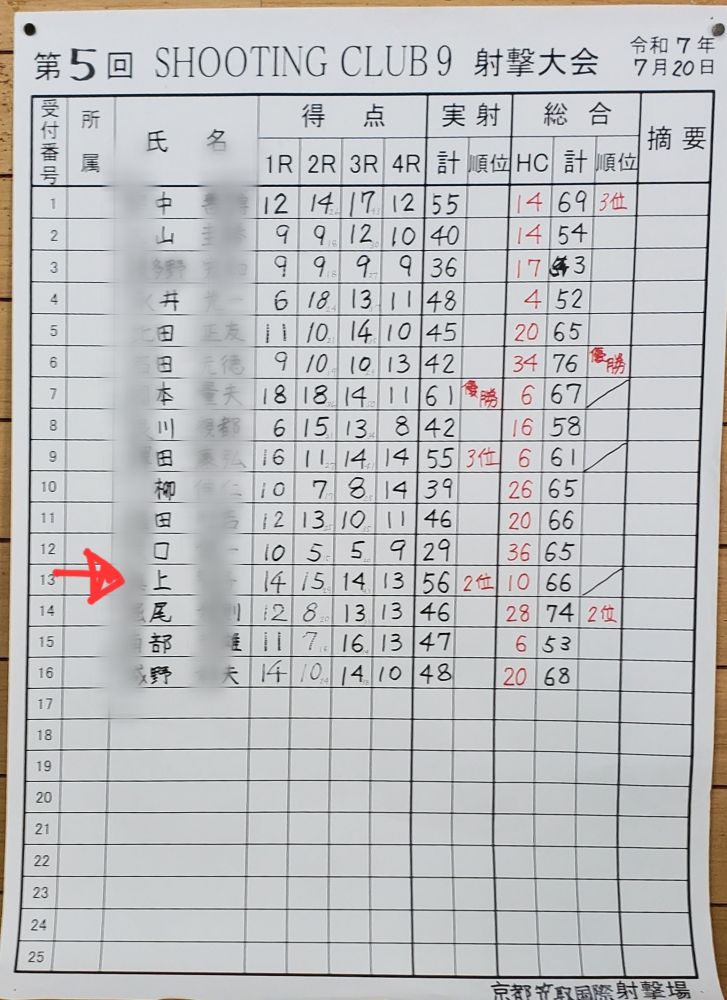 第5回 SHOOTING CLUB 9 射撃大会 令和7年
7月20日
受付番号 所属 氏名 得点 実射 総合 摘要
1R 2R 3R 4R 計 順位 HC 計 順位
1 中 12 14 17 12 55 14 69 3位
2 山 9 9 12 10 40 14 54
3 野 9 9 9 9 36 17 3
4 井 6 18 13 11 48 4 52
5 田 正友 11 10 14 10 45 20 65
6 田 徳 9 10 10 13 42 34 76 優勝
7 本 夫 18 18 14 11 61 優勝 6 67
8 川 都 6 15 13 8 42 16 58
9 田 弘 16 11 14 14 55 3位 6 61
10 柳 仁 10 7 8 14 39 26 65
11 田 12 13 10 11 46 20 66
12 口 一 10 5 5 9 29 36 65
13 上 14 15 14 13 56 2位 10 66
14 尾 則 12 8 13 13 46 28 74 2位
15 部 雄 11 7 16 13 47 6 53
16 野 夫 14 10 14 10 48 20 68
17
18
19
20
21
22
23
24
25
京都笠取国際射撃場